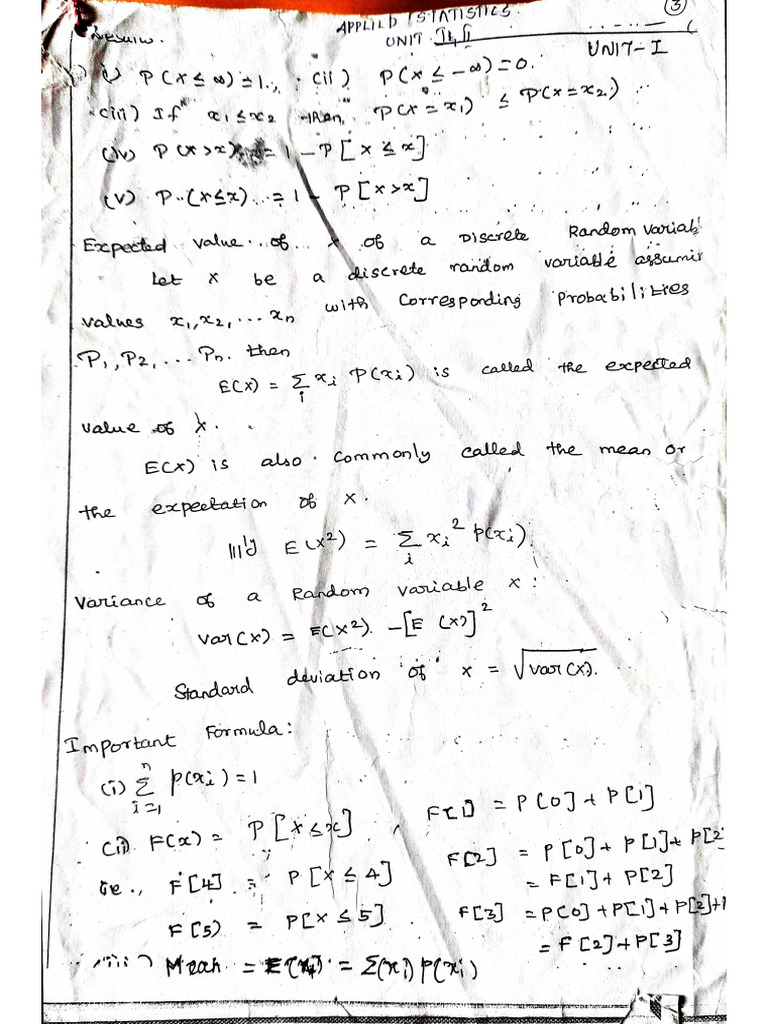 3
APPLIED STATISTICS
UNIT
UNIT-I
i) P(X ≤ ∞) = 1. (ii) P(X ≤ -∞) = 0.
(iii) If x₁ ≤ x₂ then P(X = x₁) ≤ P(X = x₂)
(iv) P(X > x) = 1 - P[X ≤ x]
(v) P(X ≤ x) = 1 - P[X > x]
Expected value of x of a Discrete Random Variabl
Let x be a discrete random variable assumin
values x₁, x₂, ... xn with corresponding Probabilities
P₁, P₂, ... Pn. then
E(X) = Σᵢ xᵢ P(xᵢ) is called the expected
value of X.
E(X) is also commonly called the mean or
the expectation of X.
|||ly E(X²) = Σᵢ xᵢ² p(xᵢ)
Variance of a Random variable x:
var(X) = E(X²) - [E(X)]²
Standard deviation of x = √var(X).
Important Formula:
(i) Σᵢ₌₁ⁿ p(xᵢ) = 1
(ii) F(x) = P[X ≤ x]
ie., F[4] = P[X ≤ 4]
F(5) = P[X ≤ 5]
(iii) Mean = E(x) = Σ(xᵢ) p(xᵢ)
F[1] = P[0] + P[1]
F[2] = P[0] + P[1] + P[2
= F[1] + P[2]
F[3] = P[0] + P[1] + P[2] +
= F[2] + P[3]